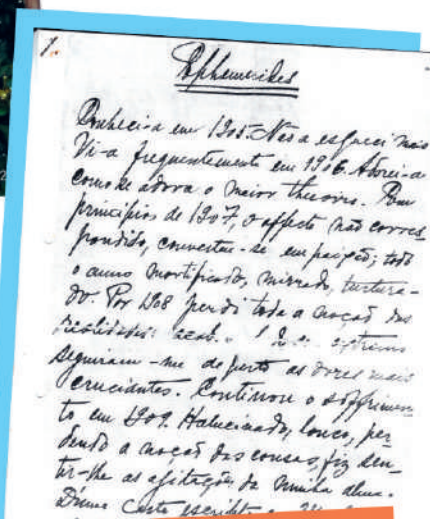 1.
Ephemerides
Conheci-a em 1905. Não a esqueci mais
Vi-a frequentemente em 1906. Adorei-a
como se adora o maior thesouro. Em
principios de 1907, o affecto não corres
pondido, converteu-se em paixão; todo
o anno mortificado, mirrado, tortura-
do. Por 1908 perdi toda a noção das
realidades:
seguiram-me de perto as dores mais
cruciantes. Continuou o soffrimen
to em 1909. Halucinado, louco, per
dendo a noção das cousas, fiz sen_
tir-lhe as agitações da minha alma.
carta escripta a
2